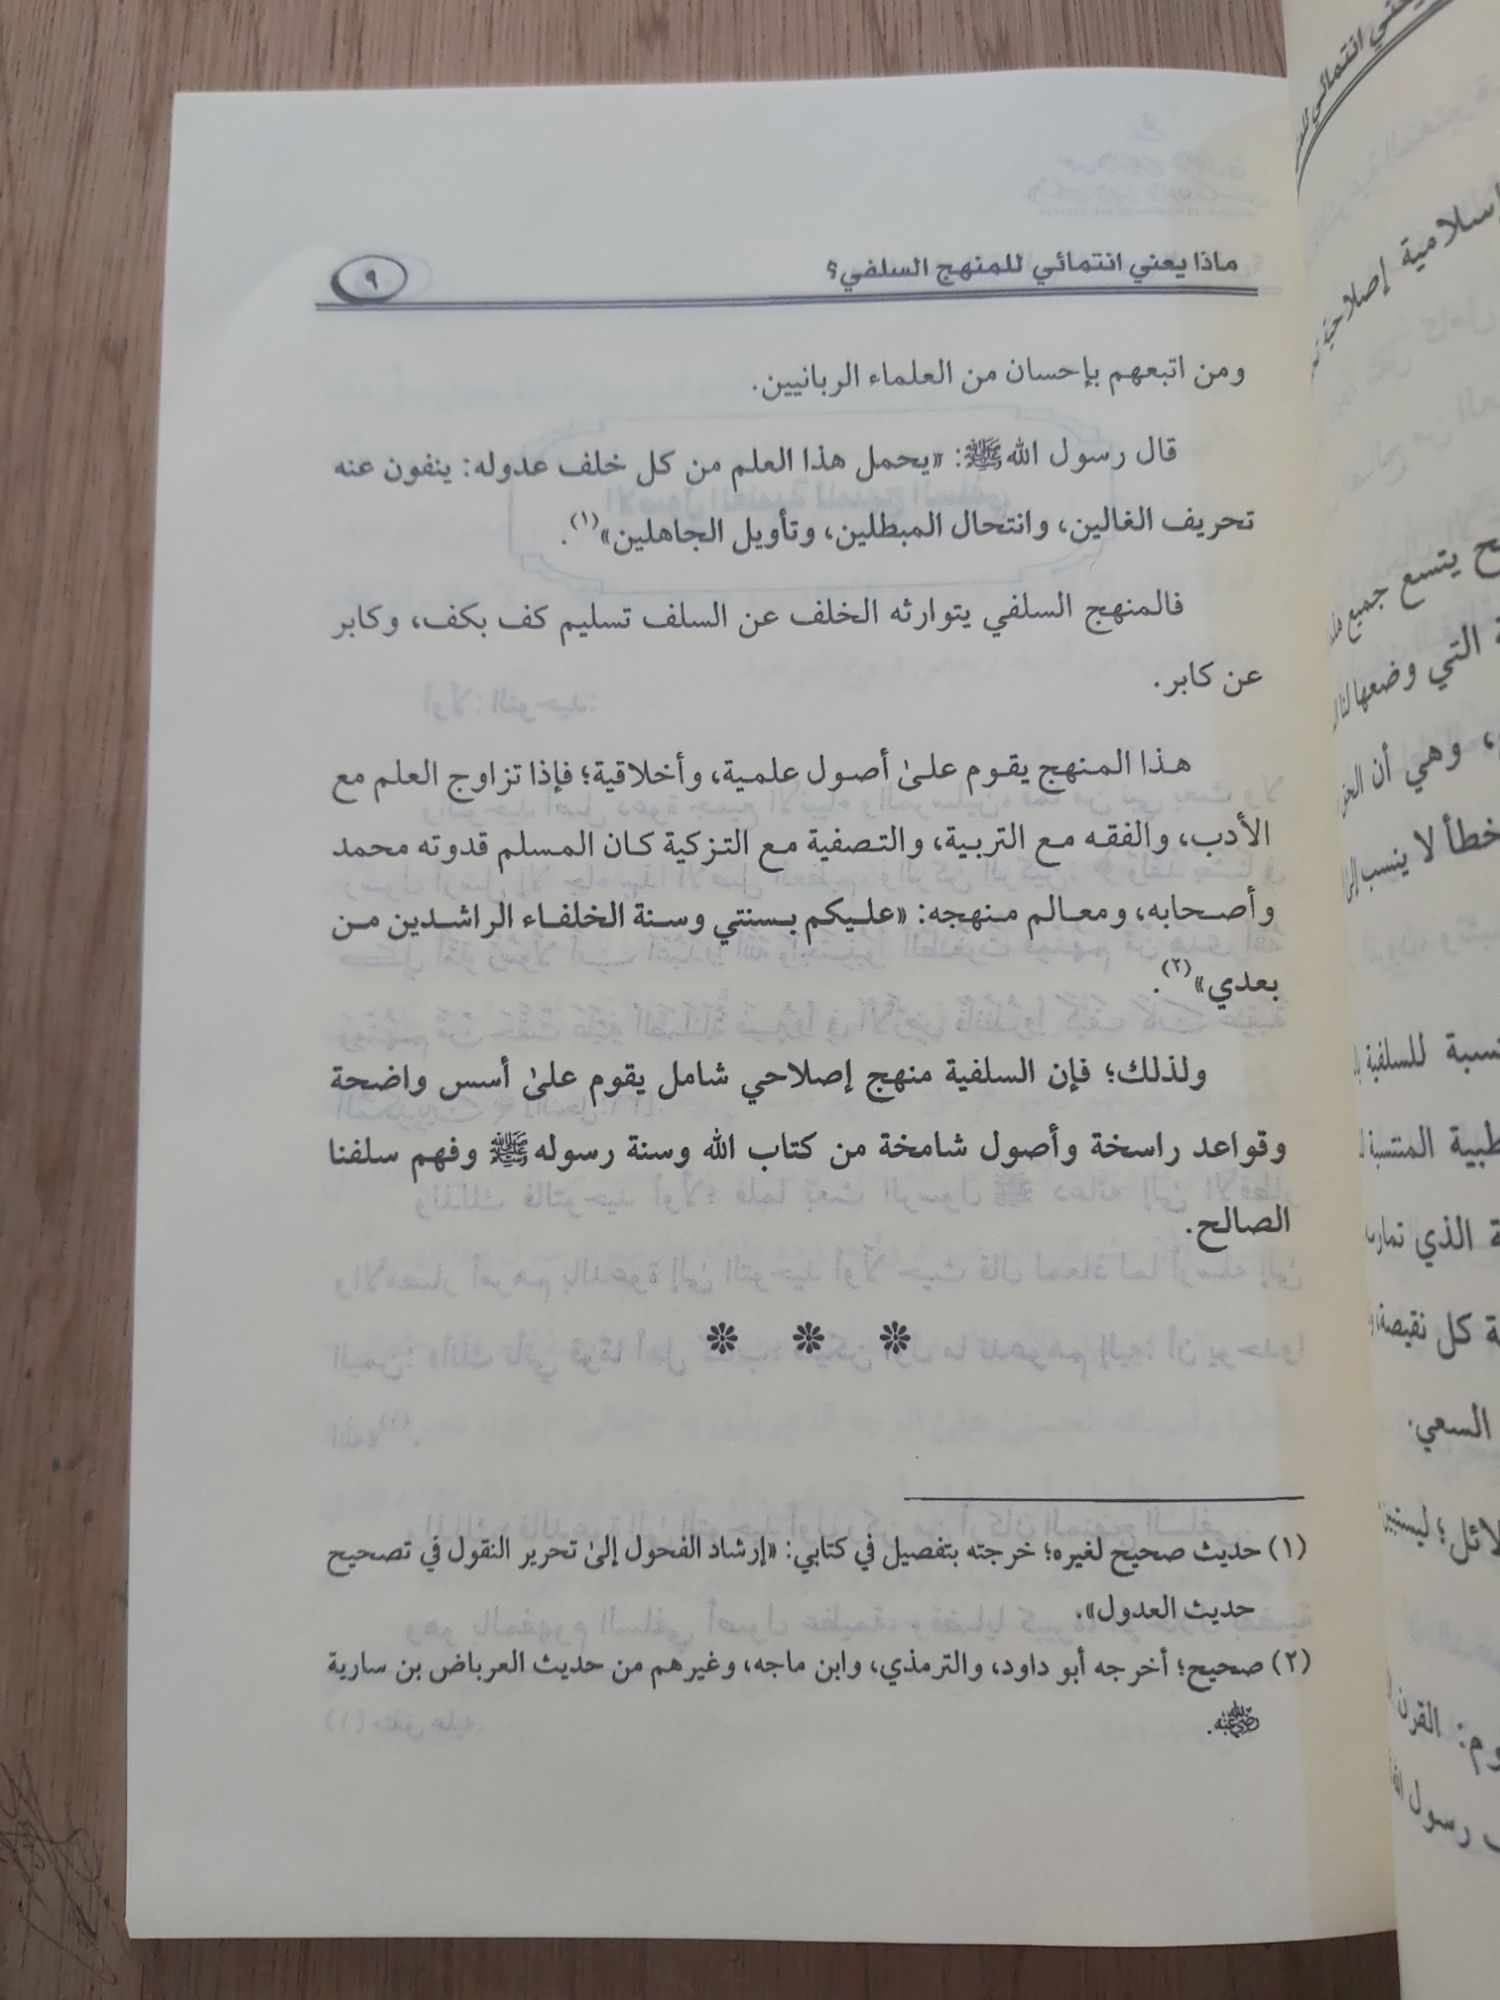 ماذا يعني انتمائي للمنهج السلفي؟ ٩
ومن اتبعهم بإحسان من العلماء الربانيين.
قال رسول الله ﷺ: «يحمل هذا العلم من كل خلف عدوله: ينفون عنه
تحريف الغالين، وانتحال المبطلين، وتأويل الجاهلين»(١).
فالمنهج السلفي يتوارثه الخلف عن السلف تسليم كف بكف، وكابر
عن كابر.
هذا المنهج يقوم علىٰ أصول علمية، وأخلاقية؛ فإذا تزاوج العلم مع
الأدب، والفقه مع التربية، والتصفية مع التزكية كان المسلم قدوته محمد
وأصحابه، ومعالم منهجه: «عليكم بسنتي وسنة الخلفاء الراشدين من
بعدي»(٢).
ولذلك؛ فإن السلفية منهج إصلاحي شامل يقوم علىٰ أسس واضحة
وقواعد راسخة وأصول شامخة من كتاب الله وسنة رسوله ﷺ وفهم سلفنا
الصالح.
(١) حديث صحيح لغيره؛ خرجته بتفصيل في كتابي: «إرشاد الفحول إلىٰ تحرير النقول في تصحيح
حديث العدول».
(٢) صحيح؛ أخرجه أبو داود، والترمذي، وابن ماجه، وغيرهم من حديث العرباض بن سارية
رضي الله عنه.
إسلامية إصلاحية
يتسع جميع
التي وضعها لنا
وهي أن
خطأ لا ينسب إلىٰ
للسلفية
المنتسبة
الذي
كل نقيصة،
السعي.
القرن
رسول